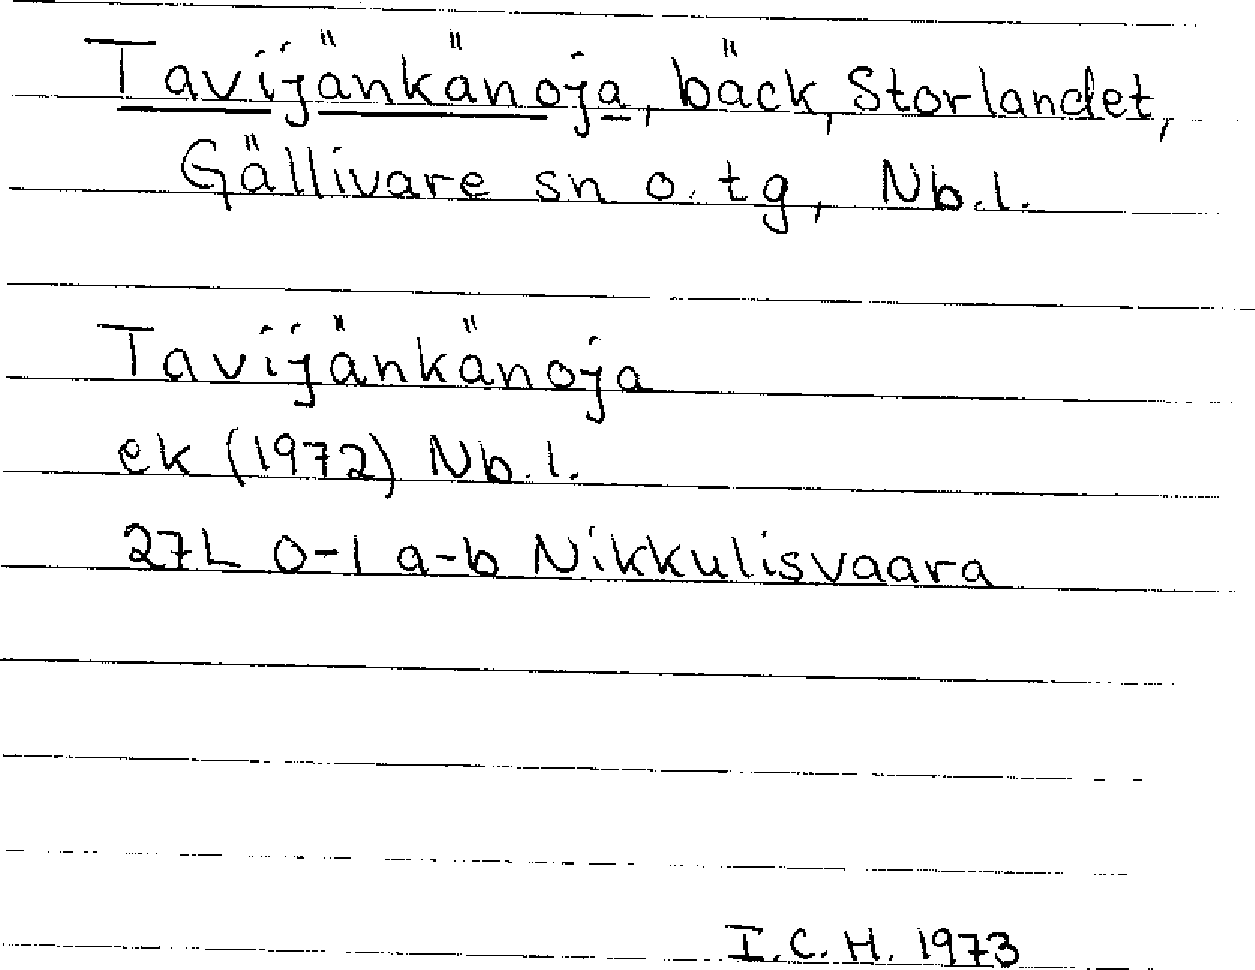 Tavijänkänoja, bäck, Storlandet,
Gällivare sn o. tg, Nb.l.
Tavijänkänoja
ek (1972) Nb.l.
27L 0-1 a-b Nikkulisvaara
I.C.H. 1973